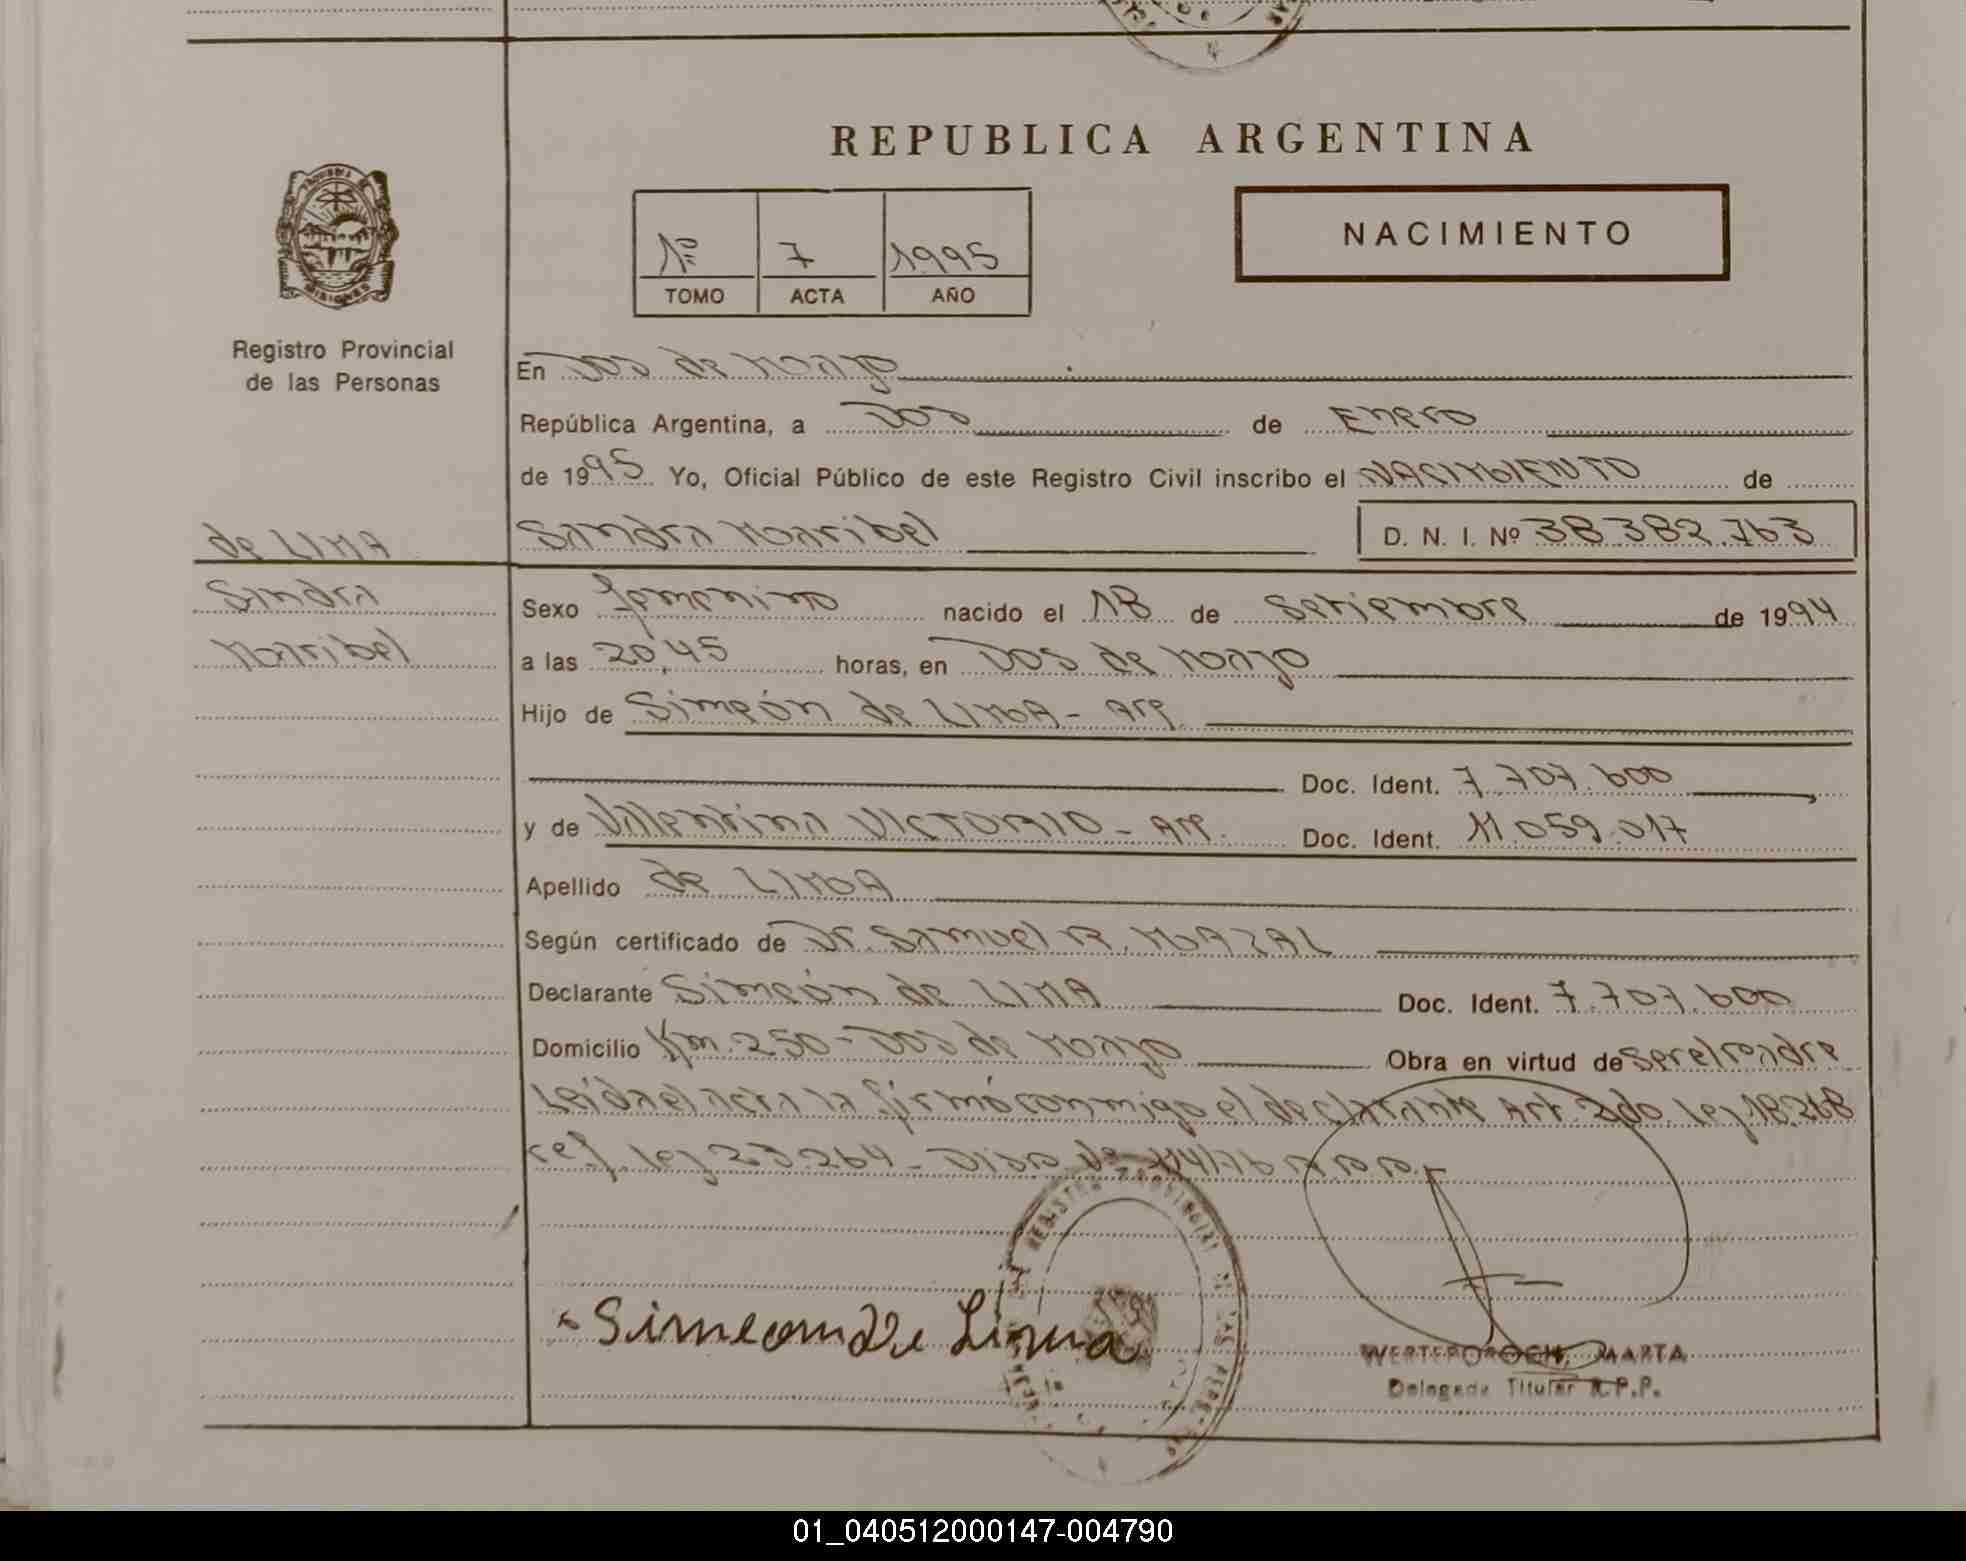 REPUBLICA ARGENTINA
MISIONES
Registro Provincial
de las Personas
1º 7 1995
TOMO ACTA AÑO
NACIMIENTO
En Dos de Mayo
República Argentina, a Dos de Enero
de 1995 Yo, Oficial Público de este Registro Civil inscribo el NACIMIENTO de
Sandra Maribel D. N. I. Nº 38.382.763
de LIMA
Sandra
Maribel
Sexo femenino nacido el 18 de Setiembre de 1994
a las 20,45 horas, en Dos de Mayo
Hijo de Simeón de LIMA - Arg.
Doc. Ident. 7.707.600
y de Valentina VICTORIO - Arg. Doc. Ident. 11.059.017
Apellido de LIMA
Según certificado de Dr. Samuel R. MAZAL
Declarante Simeón de LIMA Doc. Ident. 7.707.600
Domicilio Km. 250 - Dos de Mayo Obra en virtud de ser el padre
Leída el acta la firmó conmigo el declarante Art. 2do. ley 18.248
ref. ley 23.264 - Disp. de 114/76 R.P.P.
Simeon De Lima
WERTEPOROCH, MARTA
Delegada Titular R.P.P.
01_040512000147-004790